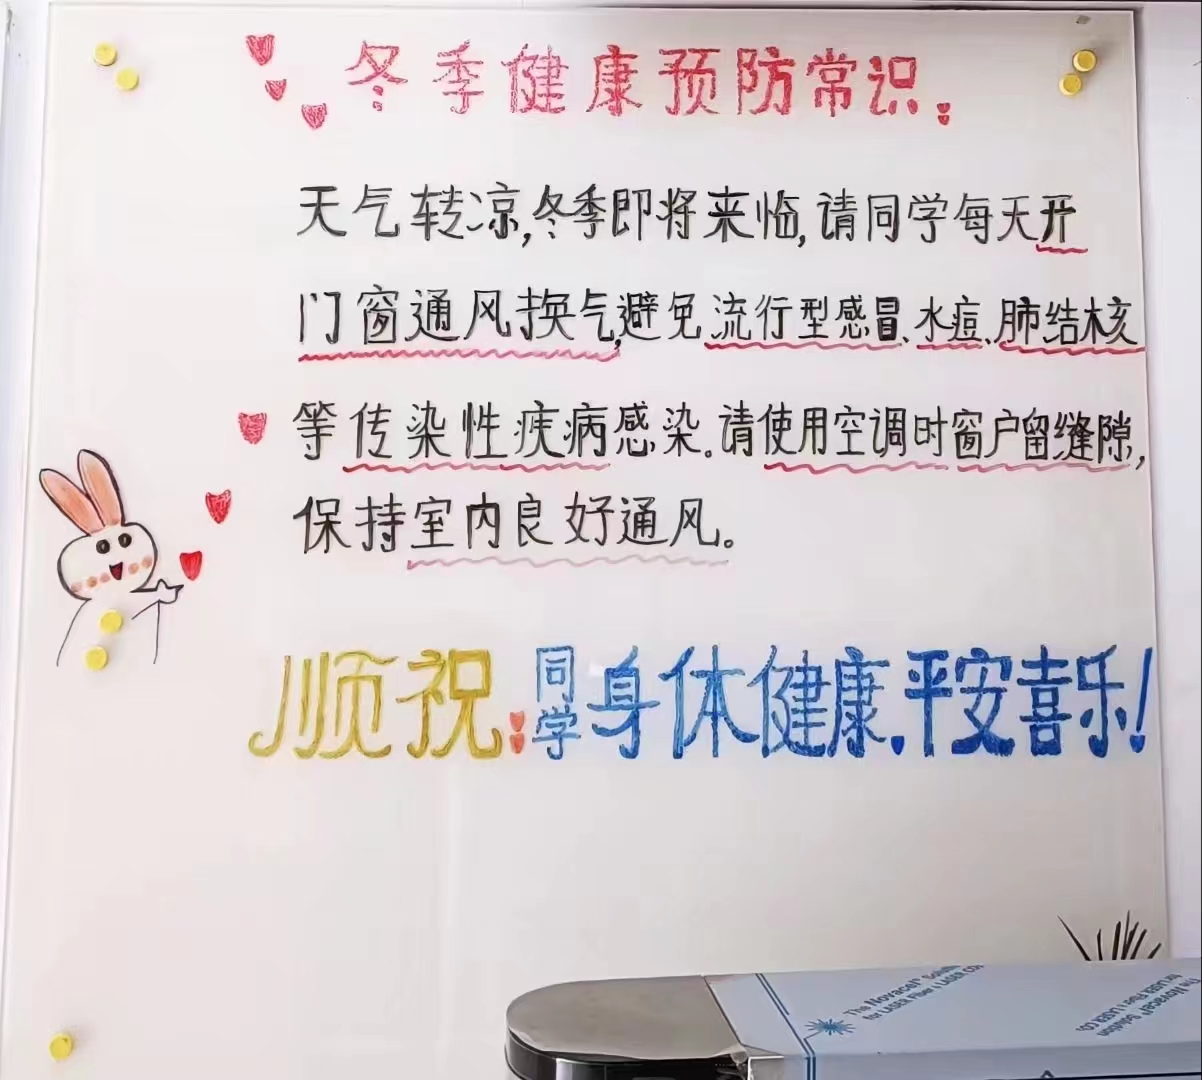 冬季健康预防常识:
天气转凉,冬季即将来临,请同学每天开
门窗通风换气,避免流行型感冒、水痘、肺结核
等传染性疾病感染。请使用空调时窗户留缝隙,
保持室内良好通风。
顺祝:同学身体健康.平安喜乐!
The Novacel® Solution
for LASER Fiber & LASER CO₂
The Novacel® Solution
for LASER Fiber & LASER CO₂